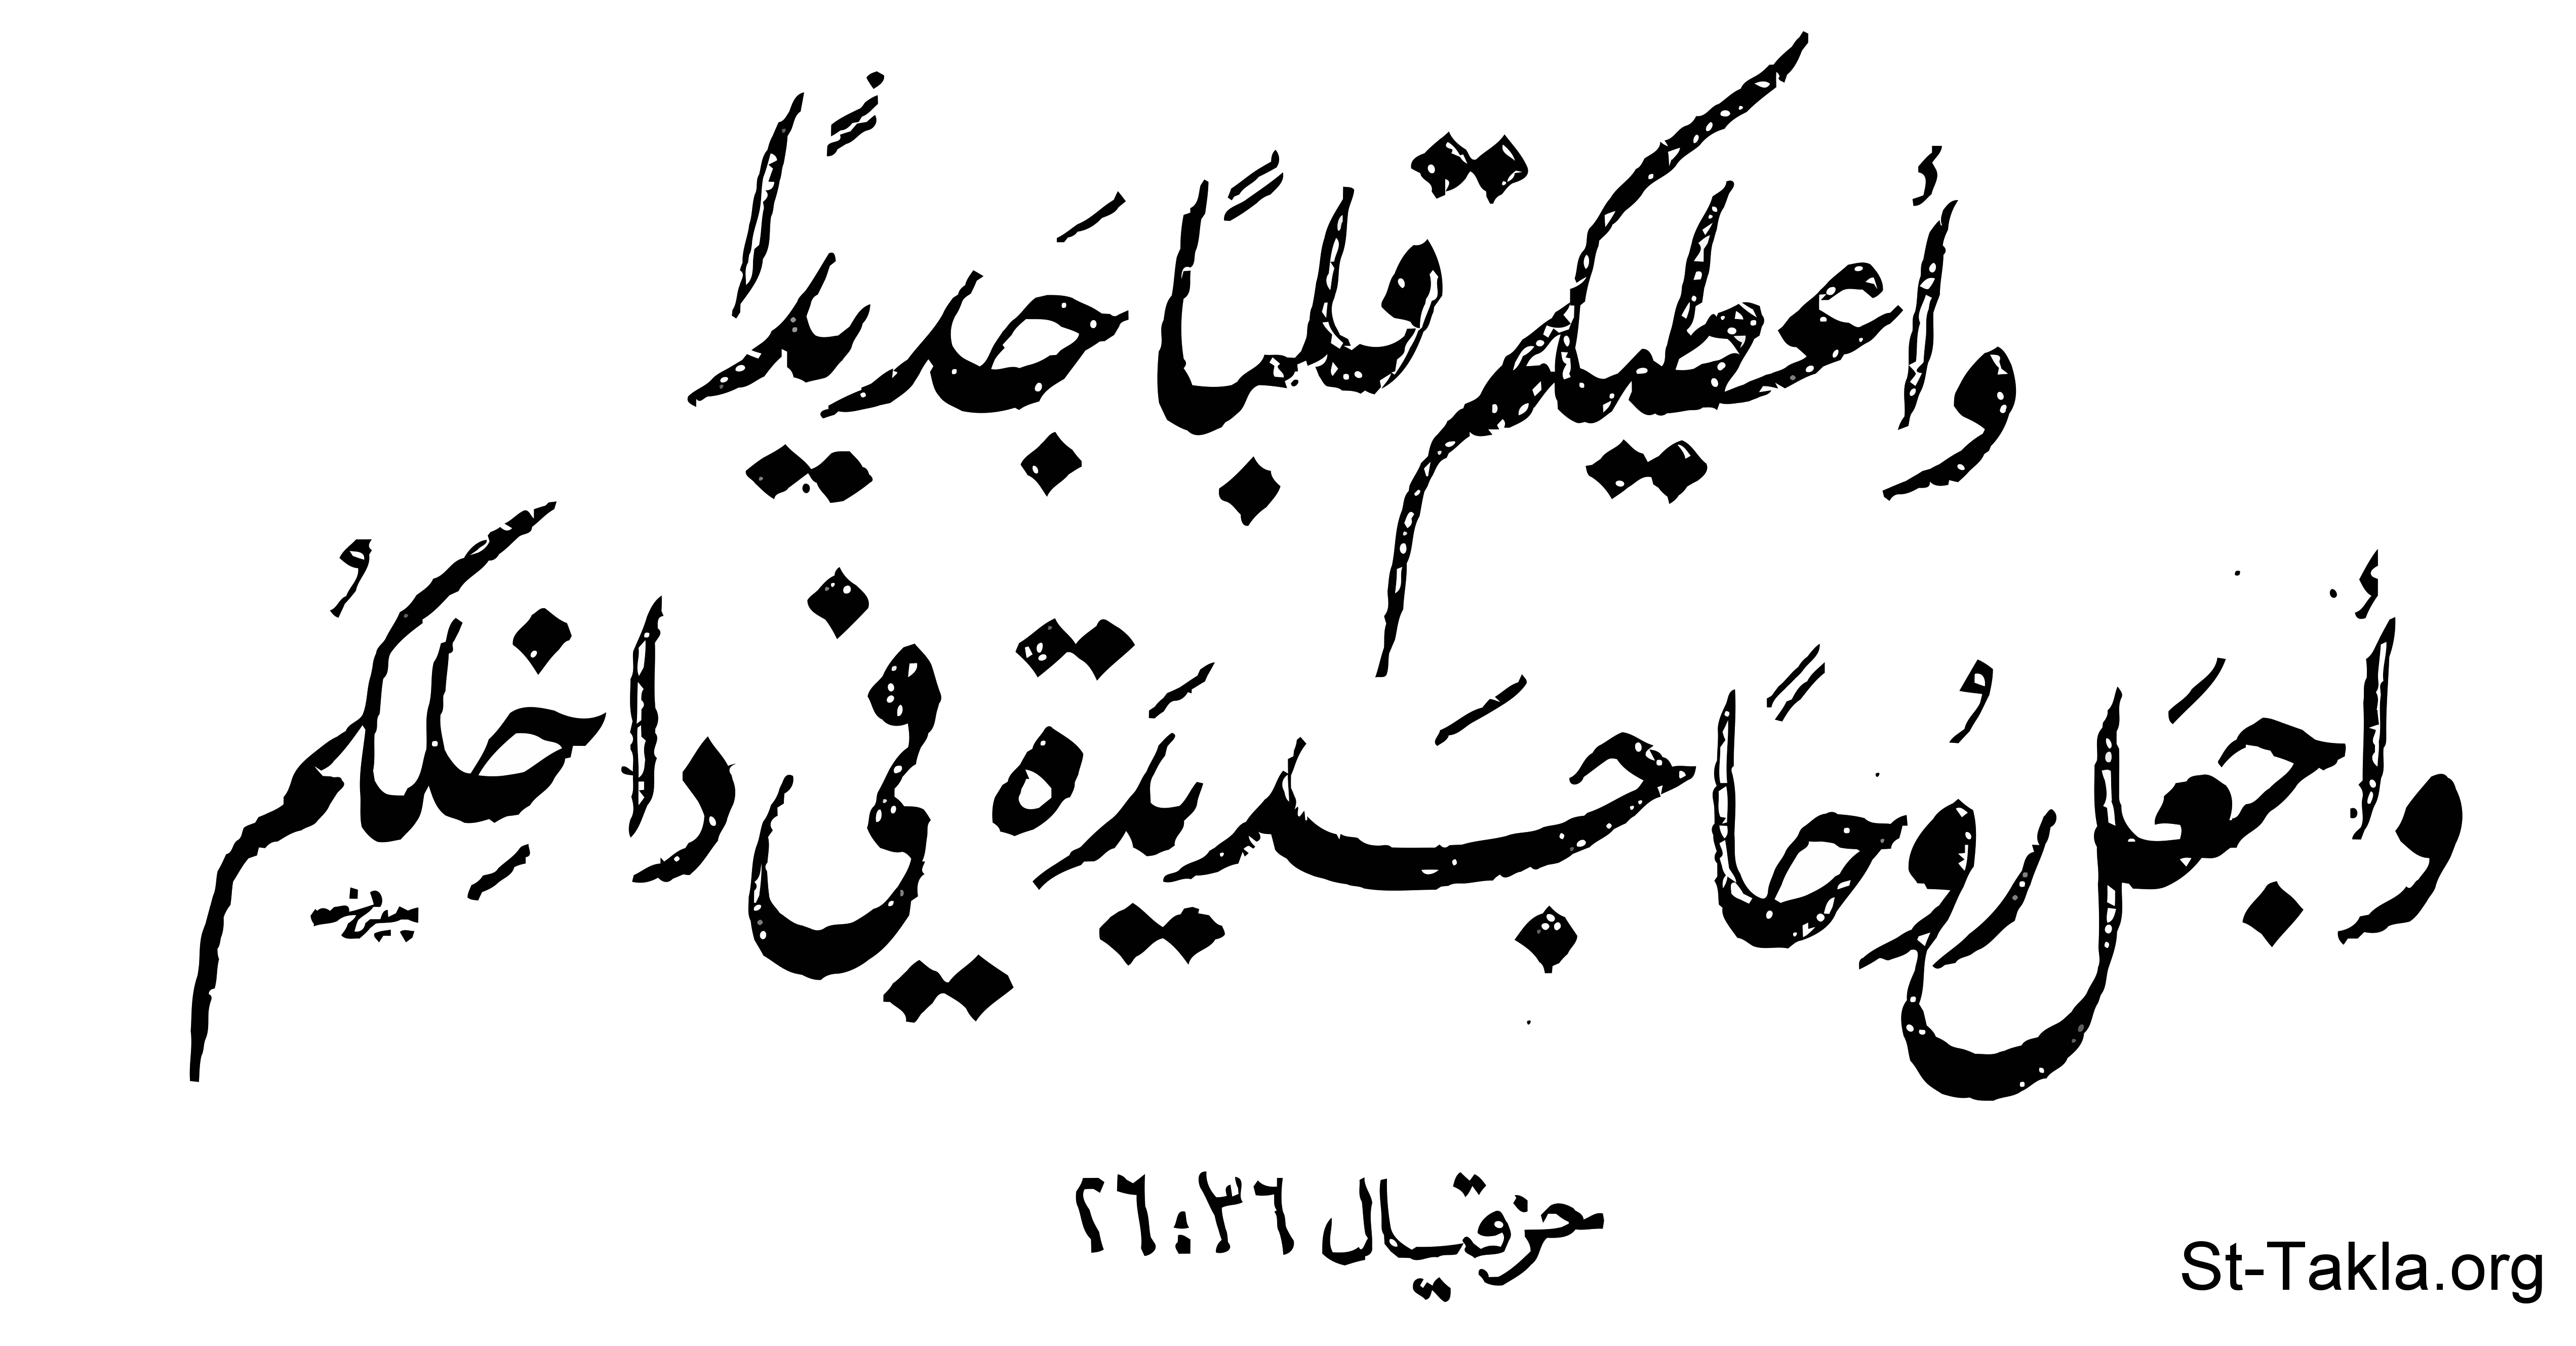 وأعطيكم قلبًا جَديدًا
وأجعَل رُوحًا جَديَدة في داخِلِكمُ
حزقيال ٣٦:٢٦
St-Takla.org